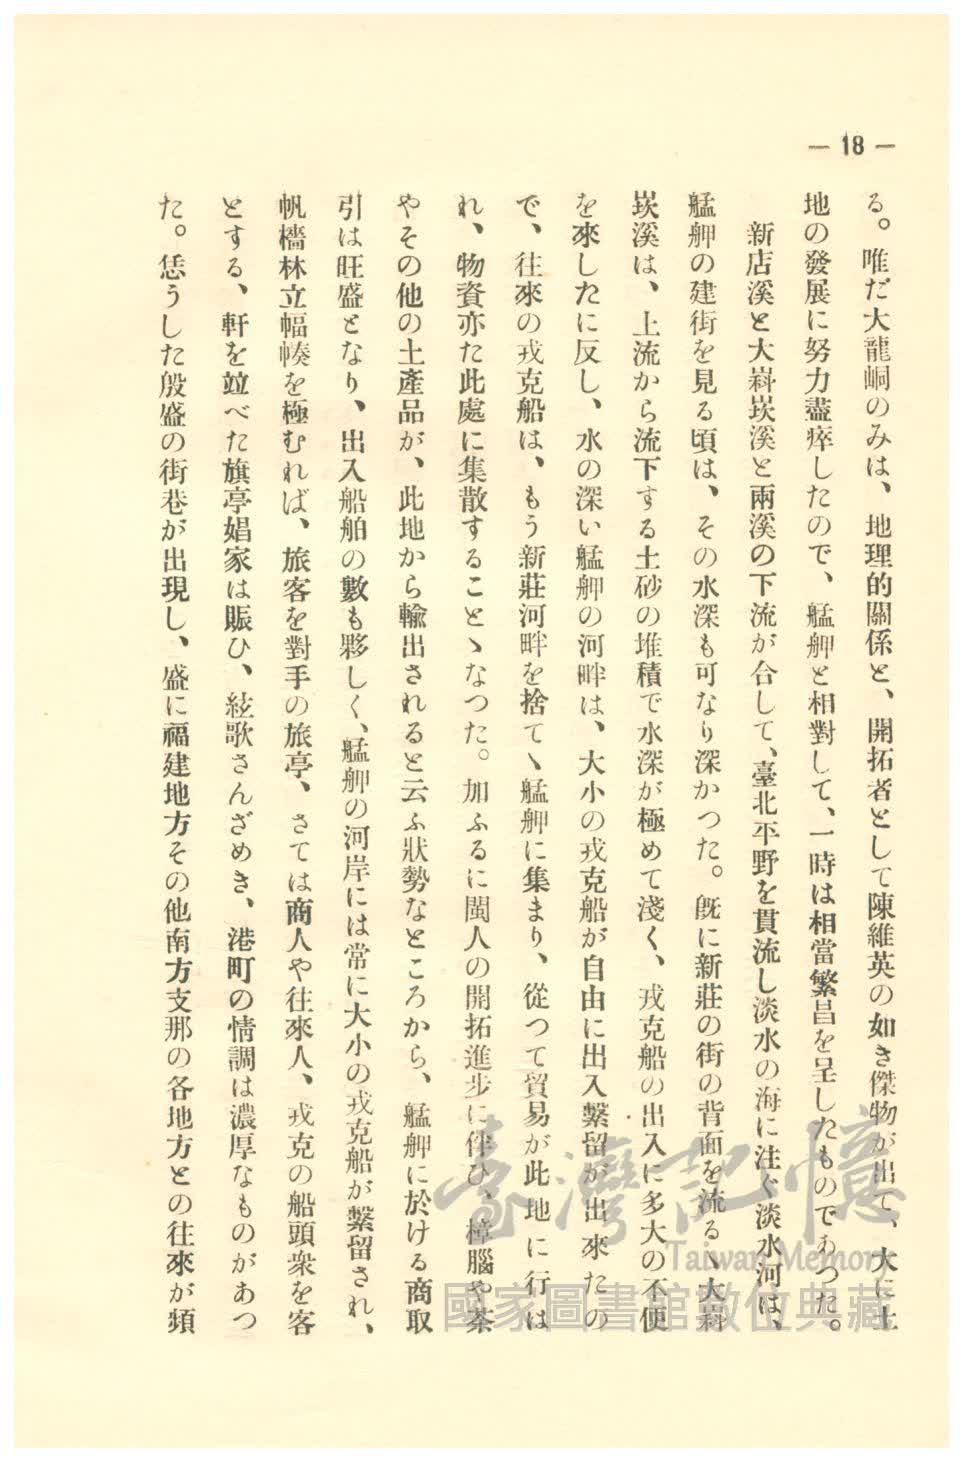 — 18 —
る。唯だ大龍峒のみは、地理的關係と、開拓者として陳維英の如き傑物が出て、大に土
地の發展に努力盡瘁したので、艋舺と相對して、一時は相當繁昌を呈したものであつた。
新店溪と大嵙崁溪と兩溪の下流が合して、臺北平野を貫流し淡水の海に注ぐ淡水河は、
艋舺の建街を見る頃は、その水深も可なり深かつた。既に新莊の街の背面を流るゝ大嵙
崁溪は、上流から流下する土砂の堆積で水深が極めて淺く、戎克船の出入に多大の不便
を來したに反し、水の深い艋舺の河畔は、大小の戎克船が自由に出入繫留が出來たの
で、往來の戎克船は、もう新莊河畔を捨てゝ艋舺に集まり、從つて貿易が此地に行は
れ、物資亦た此處に集散することゝなつた。加ふるに閩人の開拓進步に伴ひ、樟腦や茶
やその他の土產品が、此地から輸出されると云ふ狀勢なところから、艋舺に於ける商取
引は旺盛となり、出入船舶の數も夥しく、艋舺の河岸には常に大小の戎克船が繫留され、
帆檣林立幅輳を極むれば、旅客を對手の旅亭、さては商人や往來人、戎克の船頭衆を客
とする、軒を竝べた旗亭娼家は賑ひ、絃歌さんざめき、港町の情調は濃厚なものがあつ
た。恁うした殷盛の街巷が出現し、盛に福建地方その他南方支那の各地方との往來が頻
臺灣記憶
Taiwan Memory
國家圖書館數位典藏